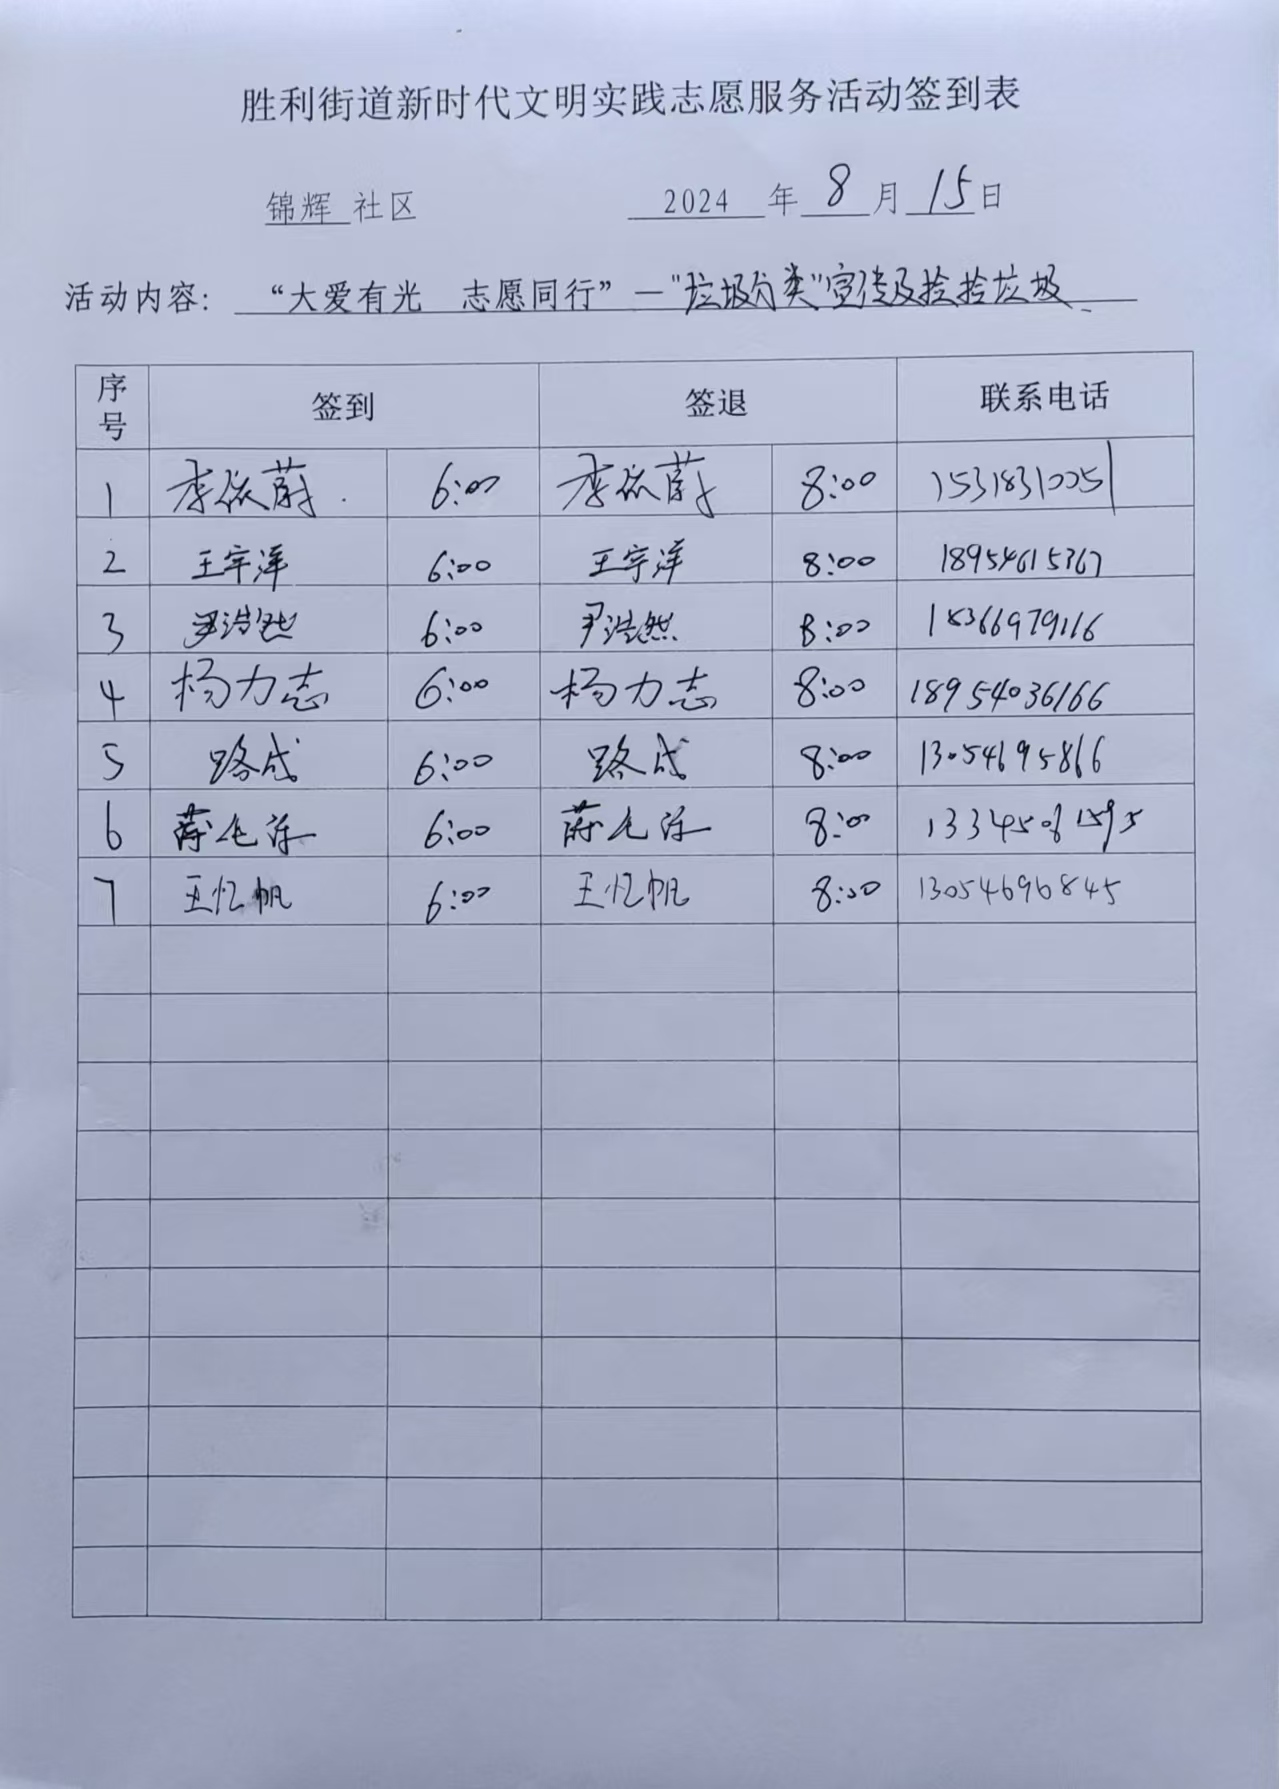 胜利街道新时代文明实践志愿服务活动签到表
锦辉 社区 2024 年 8 月 15 日
活动内容: “大爱有光 志愿同行”—"垃圾分类"宣传及捡拾垃圾
序号 签到 签退 联系电话
1 李依蔚 6:00 李依蔚 8:00 15318310051
2 王宇洋 6:00 王宇洋 8:00 18954615367
3 尹浩然 6:00 尹浩然 8:00 18366979116
4 杨力志 6:00 杨力志 8:00 18954036166
5 路成 6:00 路成 8:00 13054695866
6 6:00 8:00
7 王忆帆 6:00 王忆帆 8:00 13054696845